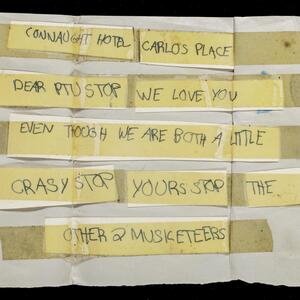 CONNAUGHT HOTEL CARLOS PLACE
DEAR PTU STOP WE LOVE YOU
EVEN THOUGH WE ARE BOTH A LITTLE
CRASY STOP YOURS STOP THE
OTHER 2 MUSKETEERS